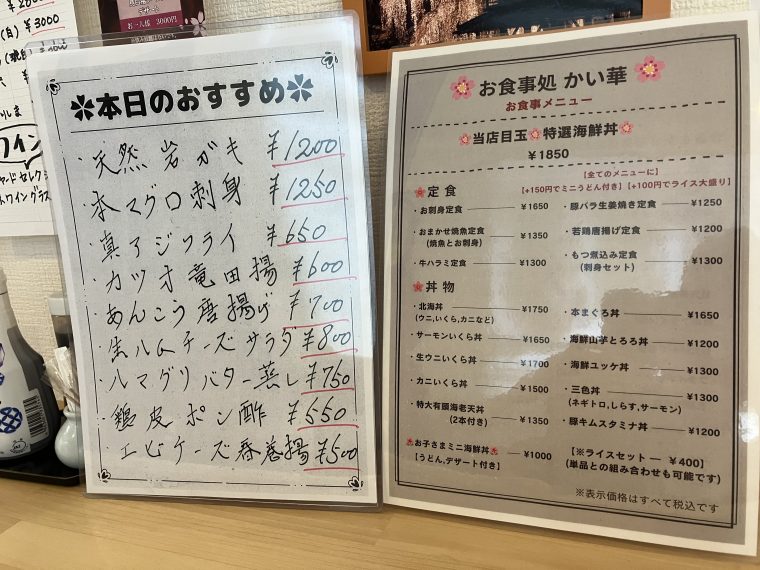 ¥3000
お一人様 3000円
✽本日のおすすめ✽
・天然岩ガキ ¥1200
・本マグロ刺身 ¥1250
・真アジフライ ¥650
・カツオ竜田揚 ¥600
・あんこう唐揚げ ¥700
・生ハムチーズサラダ ¥800
・ハマグリバター蒸し ¥750
・鶏皮ポン酢 ¥550
・エビチーズ春巻揚 ¥500
お食事処 かい華
お食事メニュー
当店目玉 特選海鮮丼
¥1850
【全てのメニューに】
【+150円でミニうどん付き】【+100円でライス大盛り】
定食
・お刺身定食 ¥1650
・おまかせ焼魚定食 ¥1350
(焼魚とお刺身)
・牛ハラミ定食 ¥1300
・豚バラ生姜焼き定食 ¥1250
・若鶏唐揚げ定食 ¥1200
・もつ煮込み定食 ¥1300
(刺身セット)
丼物
・北海丼 ¥1750
(ウニ,いくら,カニなど)
・サーモンいくら丼 ¥1650
・生ウニいくら丼 ¥1700
・カニいくら丼 ¥1500
・特大有頭海老天丼 ¥1350
(2本付き)
・本まぐろ丼 ¥1650
・海鮮山芋とろろ丼 ¥1200
・海鮮ユッケ丼 ¥1300
・三色丼 ¥1300
(ネギトロ,しらす,サーモン)
・豚キムスタミナ丼 ¥1200
お子さまミニ海鮮丼 ¥1000
【うどん,デザート付き】
【※ライスセット ― ¥400】
(単品との組み合わせも可能です)
※表示価格はすべて税込です